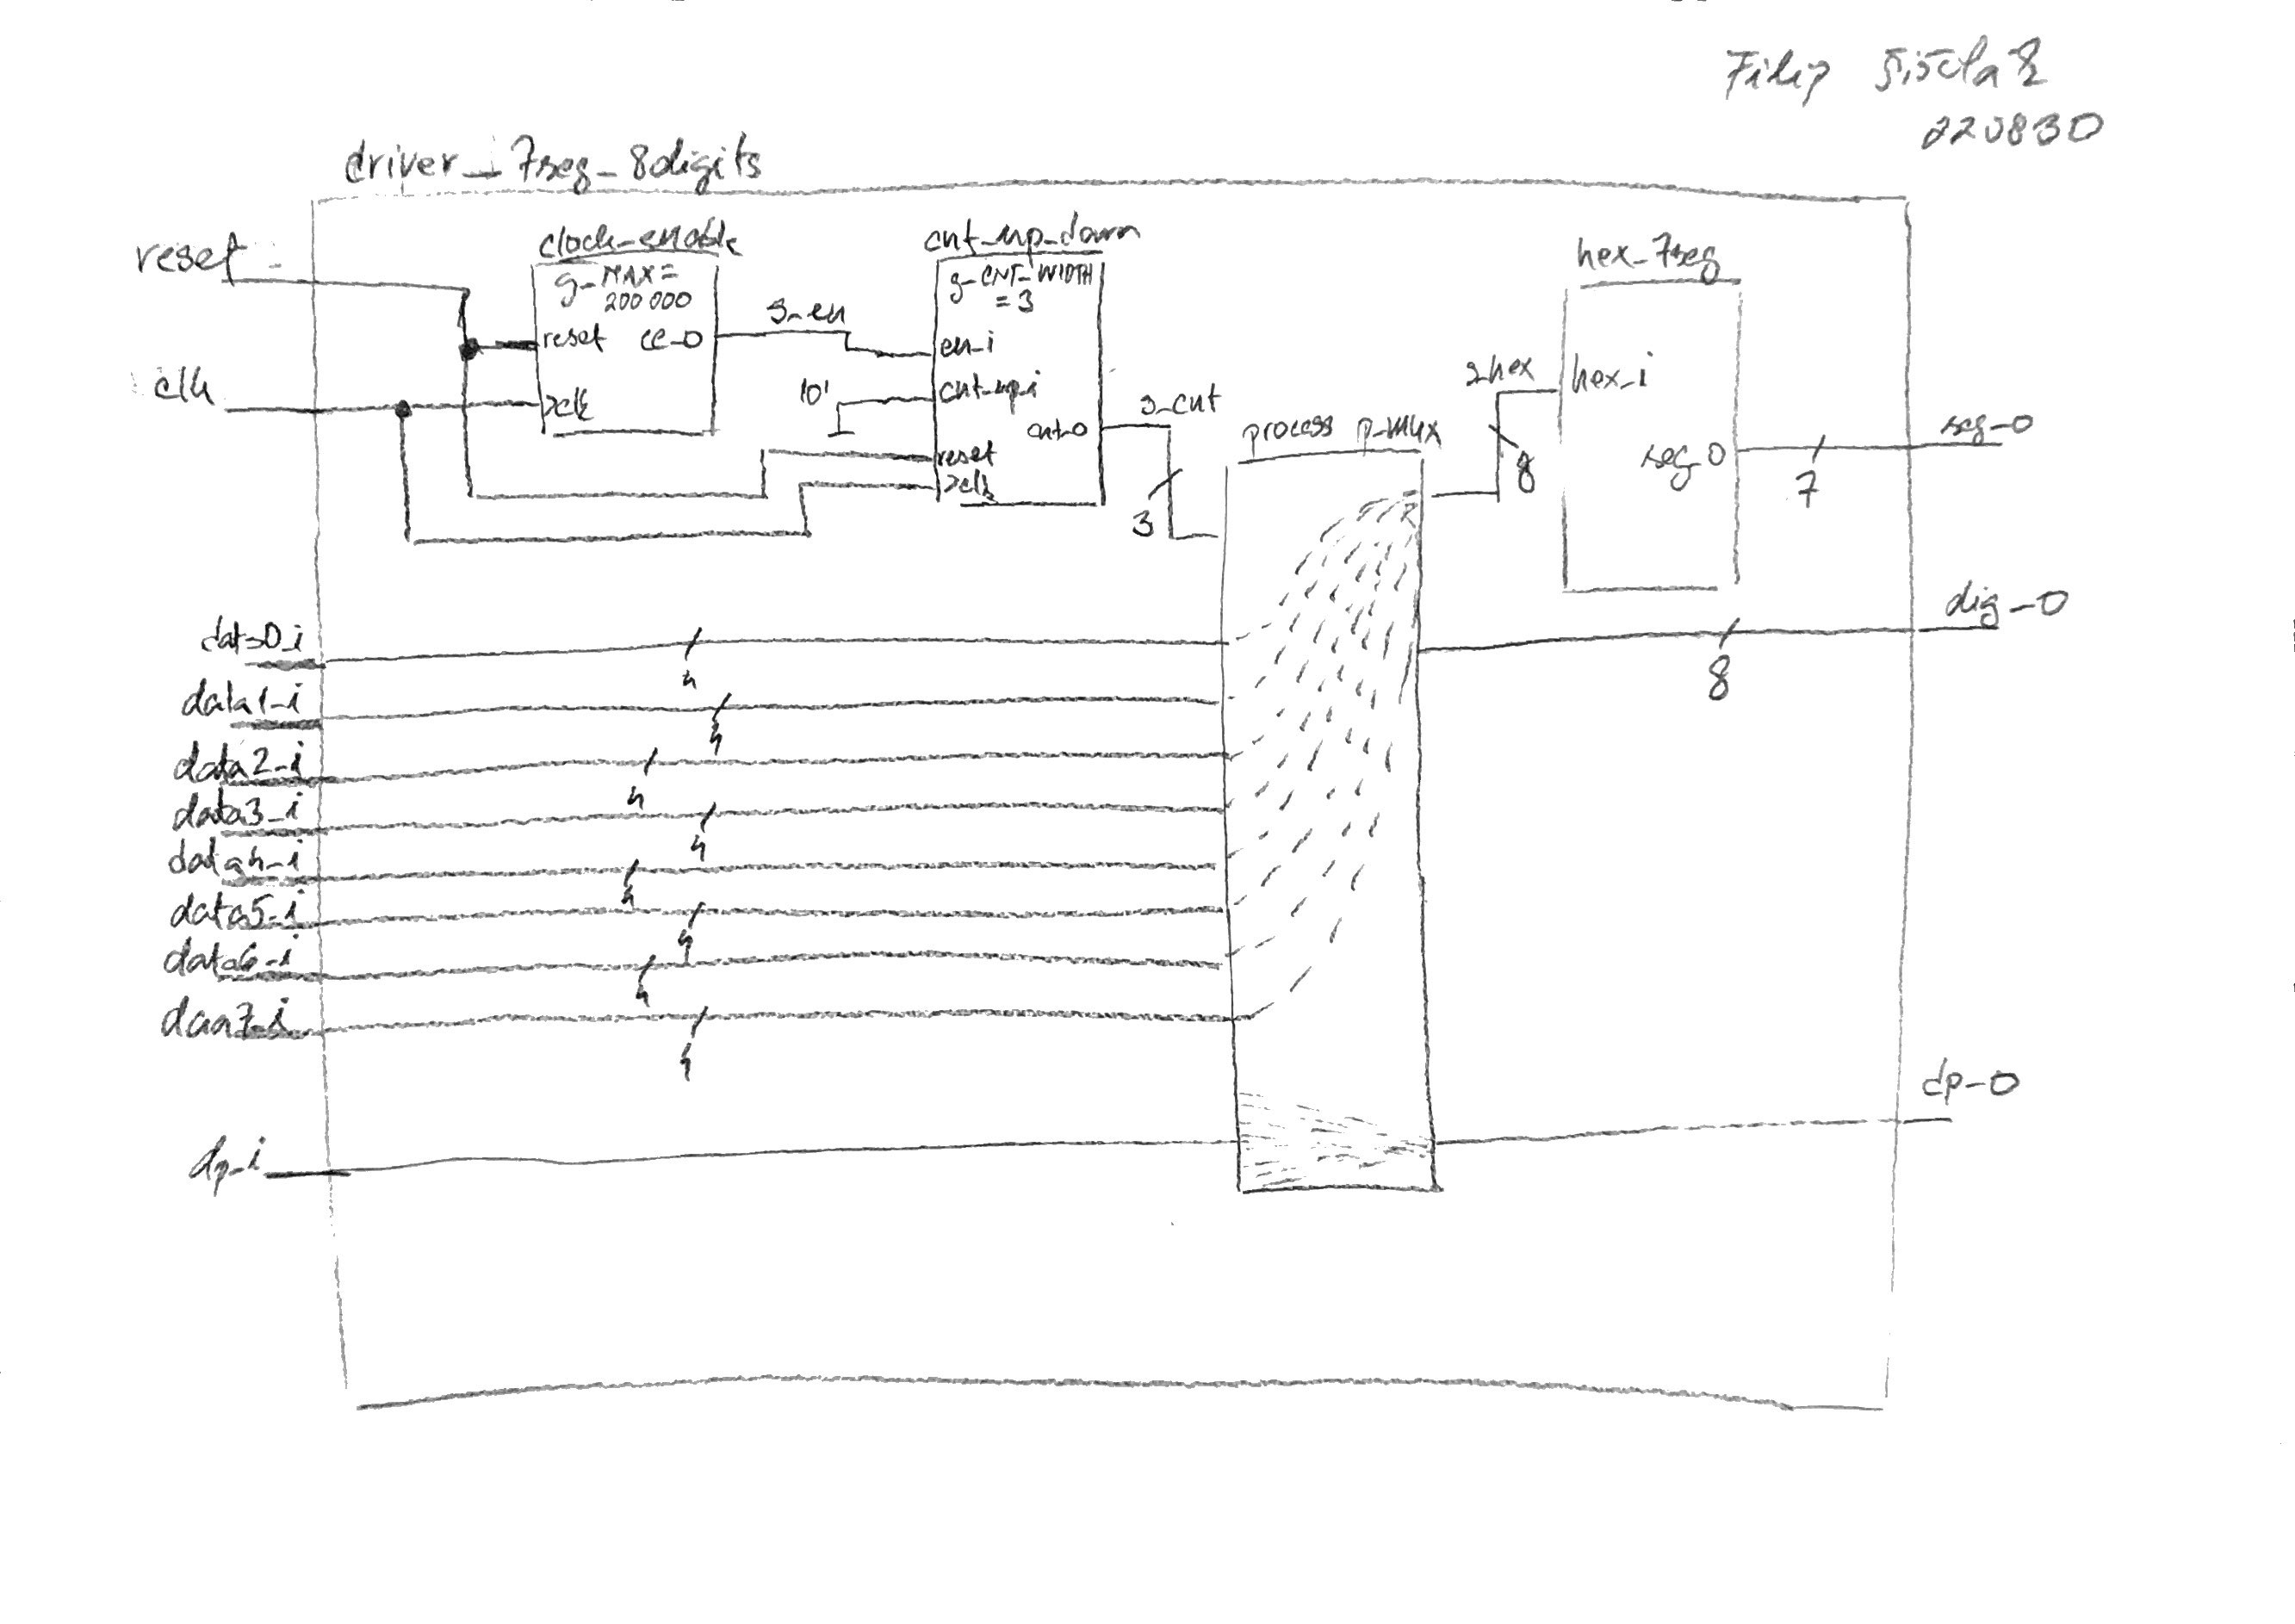 Filip Šišlák
220830
driver_7seg_8digits
reset
clk
clock_enable
g_MAX=
200 000
reset ce_o
>clk
s_en
cnt_up_down
g_CNT_WIDTH
= 3
en_i
cnt_up_i
cnt_o
reset
>clk
'0'
s_cnt
3
process p_mux
shex
8
hex_7seg
hex_i
seg_o
7
seg_o
dig_o
8
data0_i
4
data1_i
4
data2_i
4
data3_i
4
data4_i
4
data5_i
4
data6_i
4
daa7_i
4
dp_i
dp_o